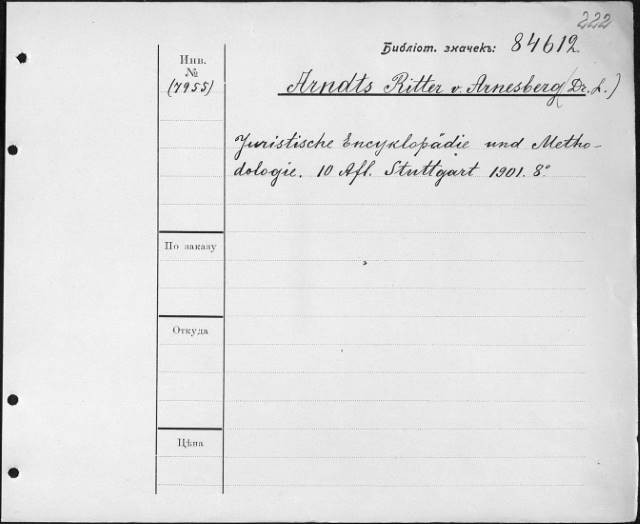 222
Библіот. значекъ: 84612
Инв.
№
(7955)
Arndts Ritter v. Arnesberg (Dr. L.)
Juristische Encyklopädie und Metho-
dologie. 10 Afl. Stuttgart 1901. 8°
По заказу
Откуда
Цѣна